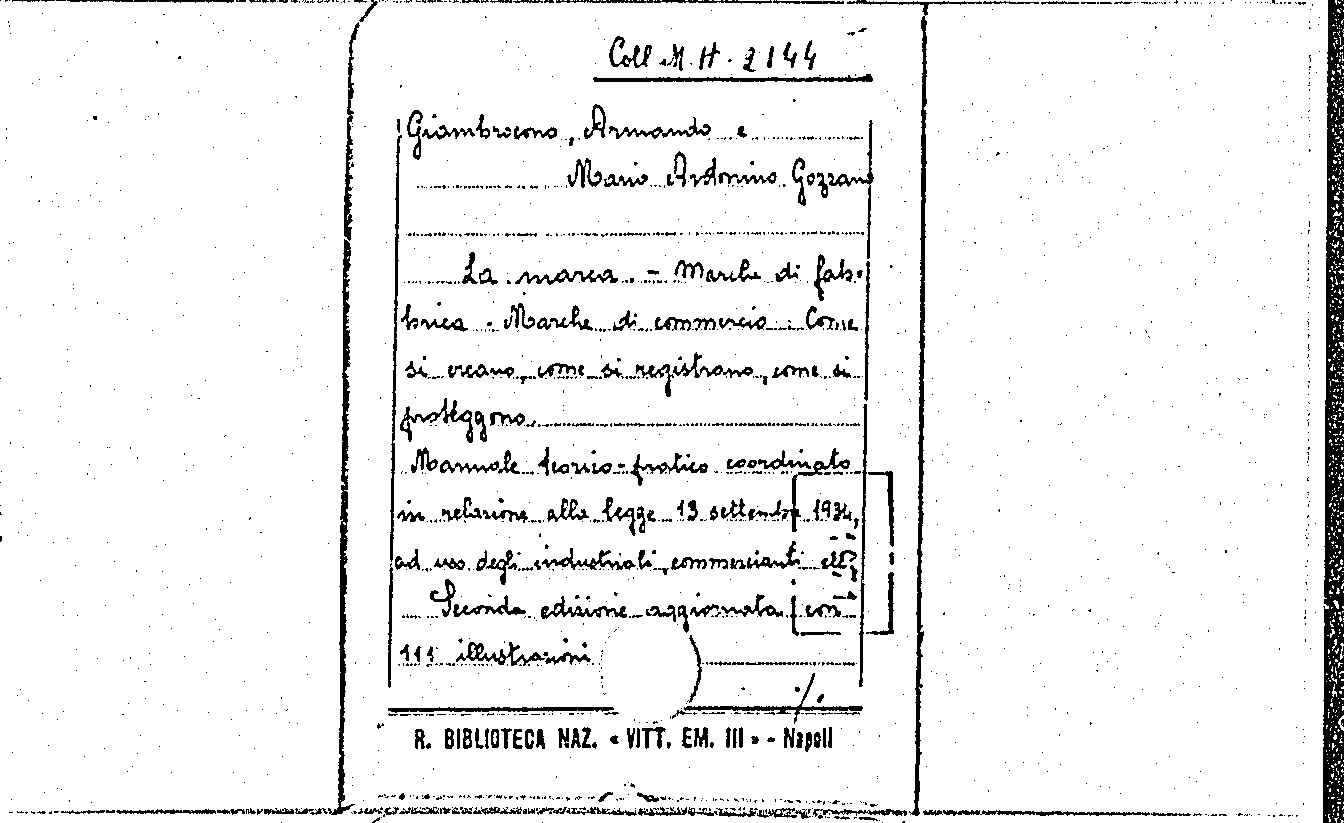 Coll M. H. 2144
Giambrocono, Armando e
Mario Ardonino Gozzano
La marca. - Marche di fab-
brica - Marche di commercio. Come
si creano, come si registrano, come si
proteggono.
Manuale teorico-pratico coordinato
in relazione alla legge 13 settembre 1934,
ad uso degli industriali, commercianti etc.
Seconda edizione aggiornata con
111 illustrazioni
./.
R. BIBLIOTECA NAZ. « VITT. EM. III » - Napoli